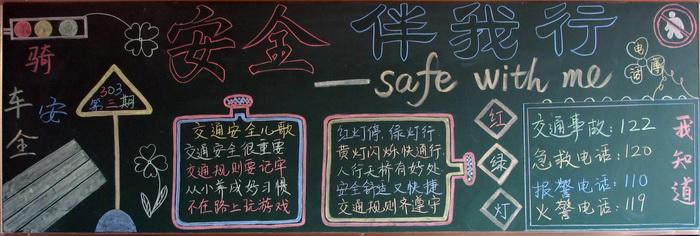 安全 伴我行
—safe with me
骑车安全
303
第三期
交通安全儿歌
交通安全很重要
交通规则要记牢
从小养成好习惯
不在路上玩游戏
红灯停,绿灯行
黄灯闪烁快通行,
人行天桥有好处
安全舒适又快捷
交通规则齐遵守
红
绿
灯
电
话
交通事故:122
急救电话:120
报警电话:110
火警电话:119
我知道